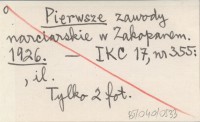 Pierwsze zawody
narciarskie w Zakopanem.
1926. — IKC 17, nr 355:
, il.
Tylko 2 fot.